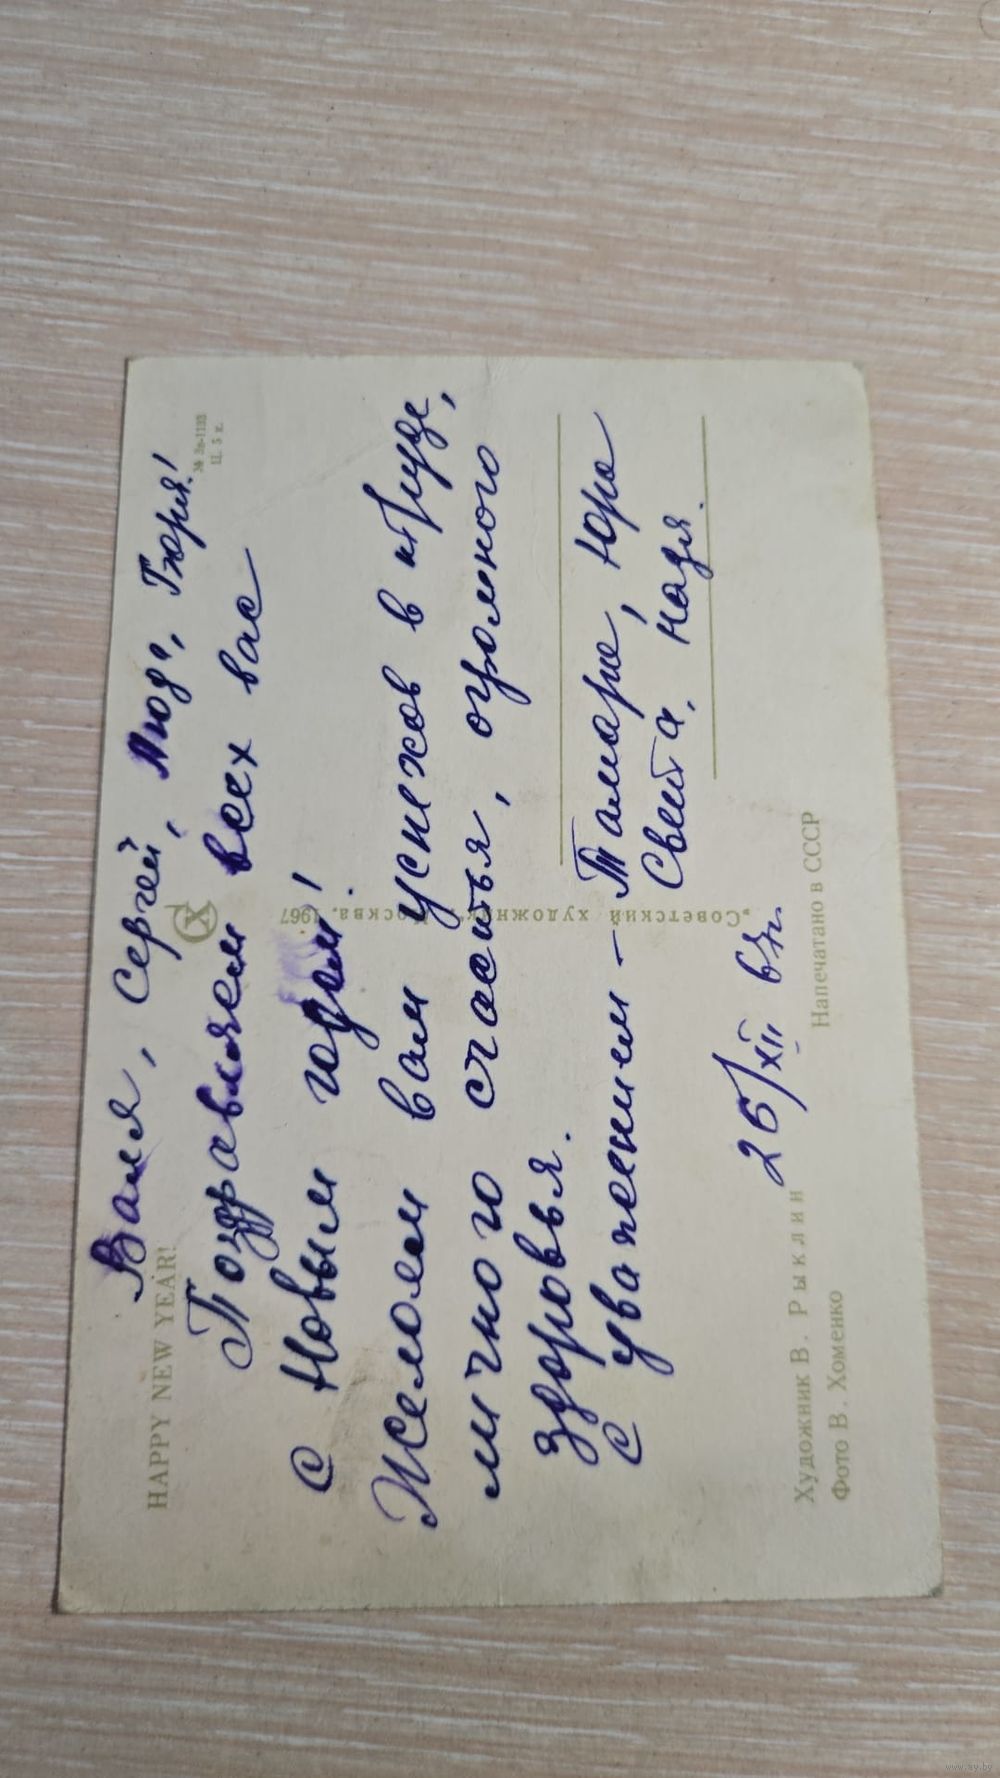 HAPPY NEW YEAR!
№ Зв-1133
Ц. 5 к.
Валя, Сергей, Люда,
Поздравляем всех вас
с Новым годом!
Желаем вам успехов в труде,
личного счастья, огромного
здоровья.
С уважением – Тамара, Юра
Света, Надя.
26/XII 67г.
„Советский художник", Москва, 1967
Художник В. Рыклин
Фото В. Хоменко
Напечатано в СССР
www.ay.by